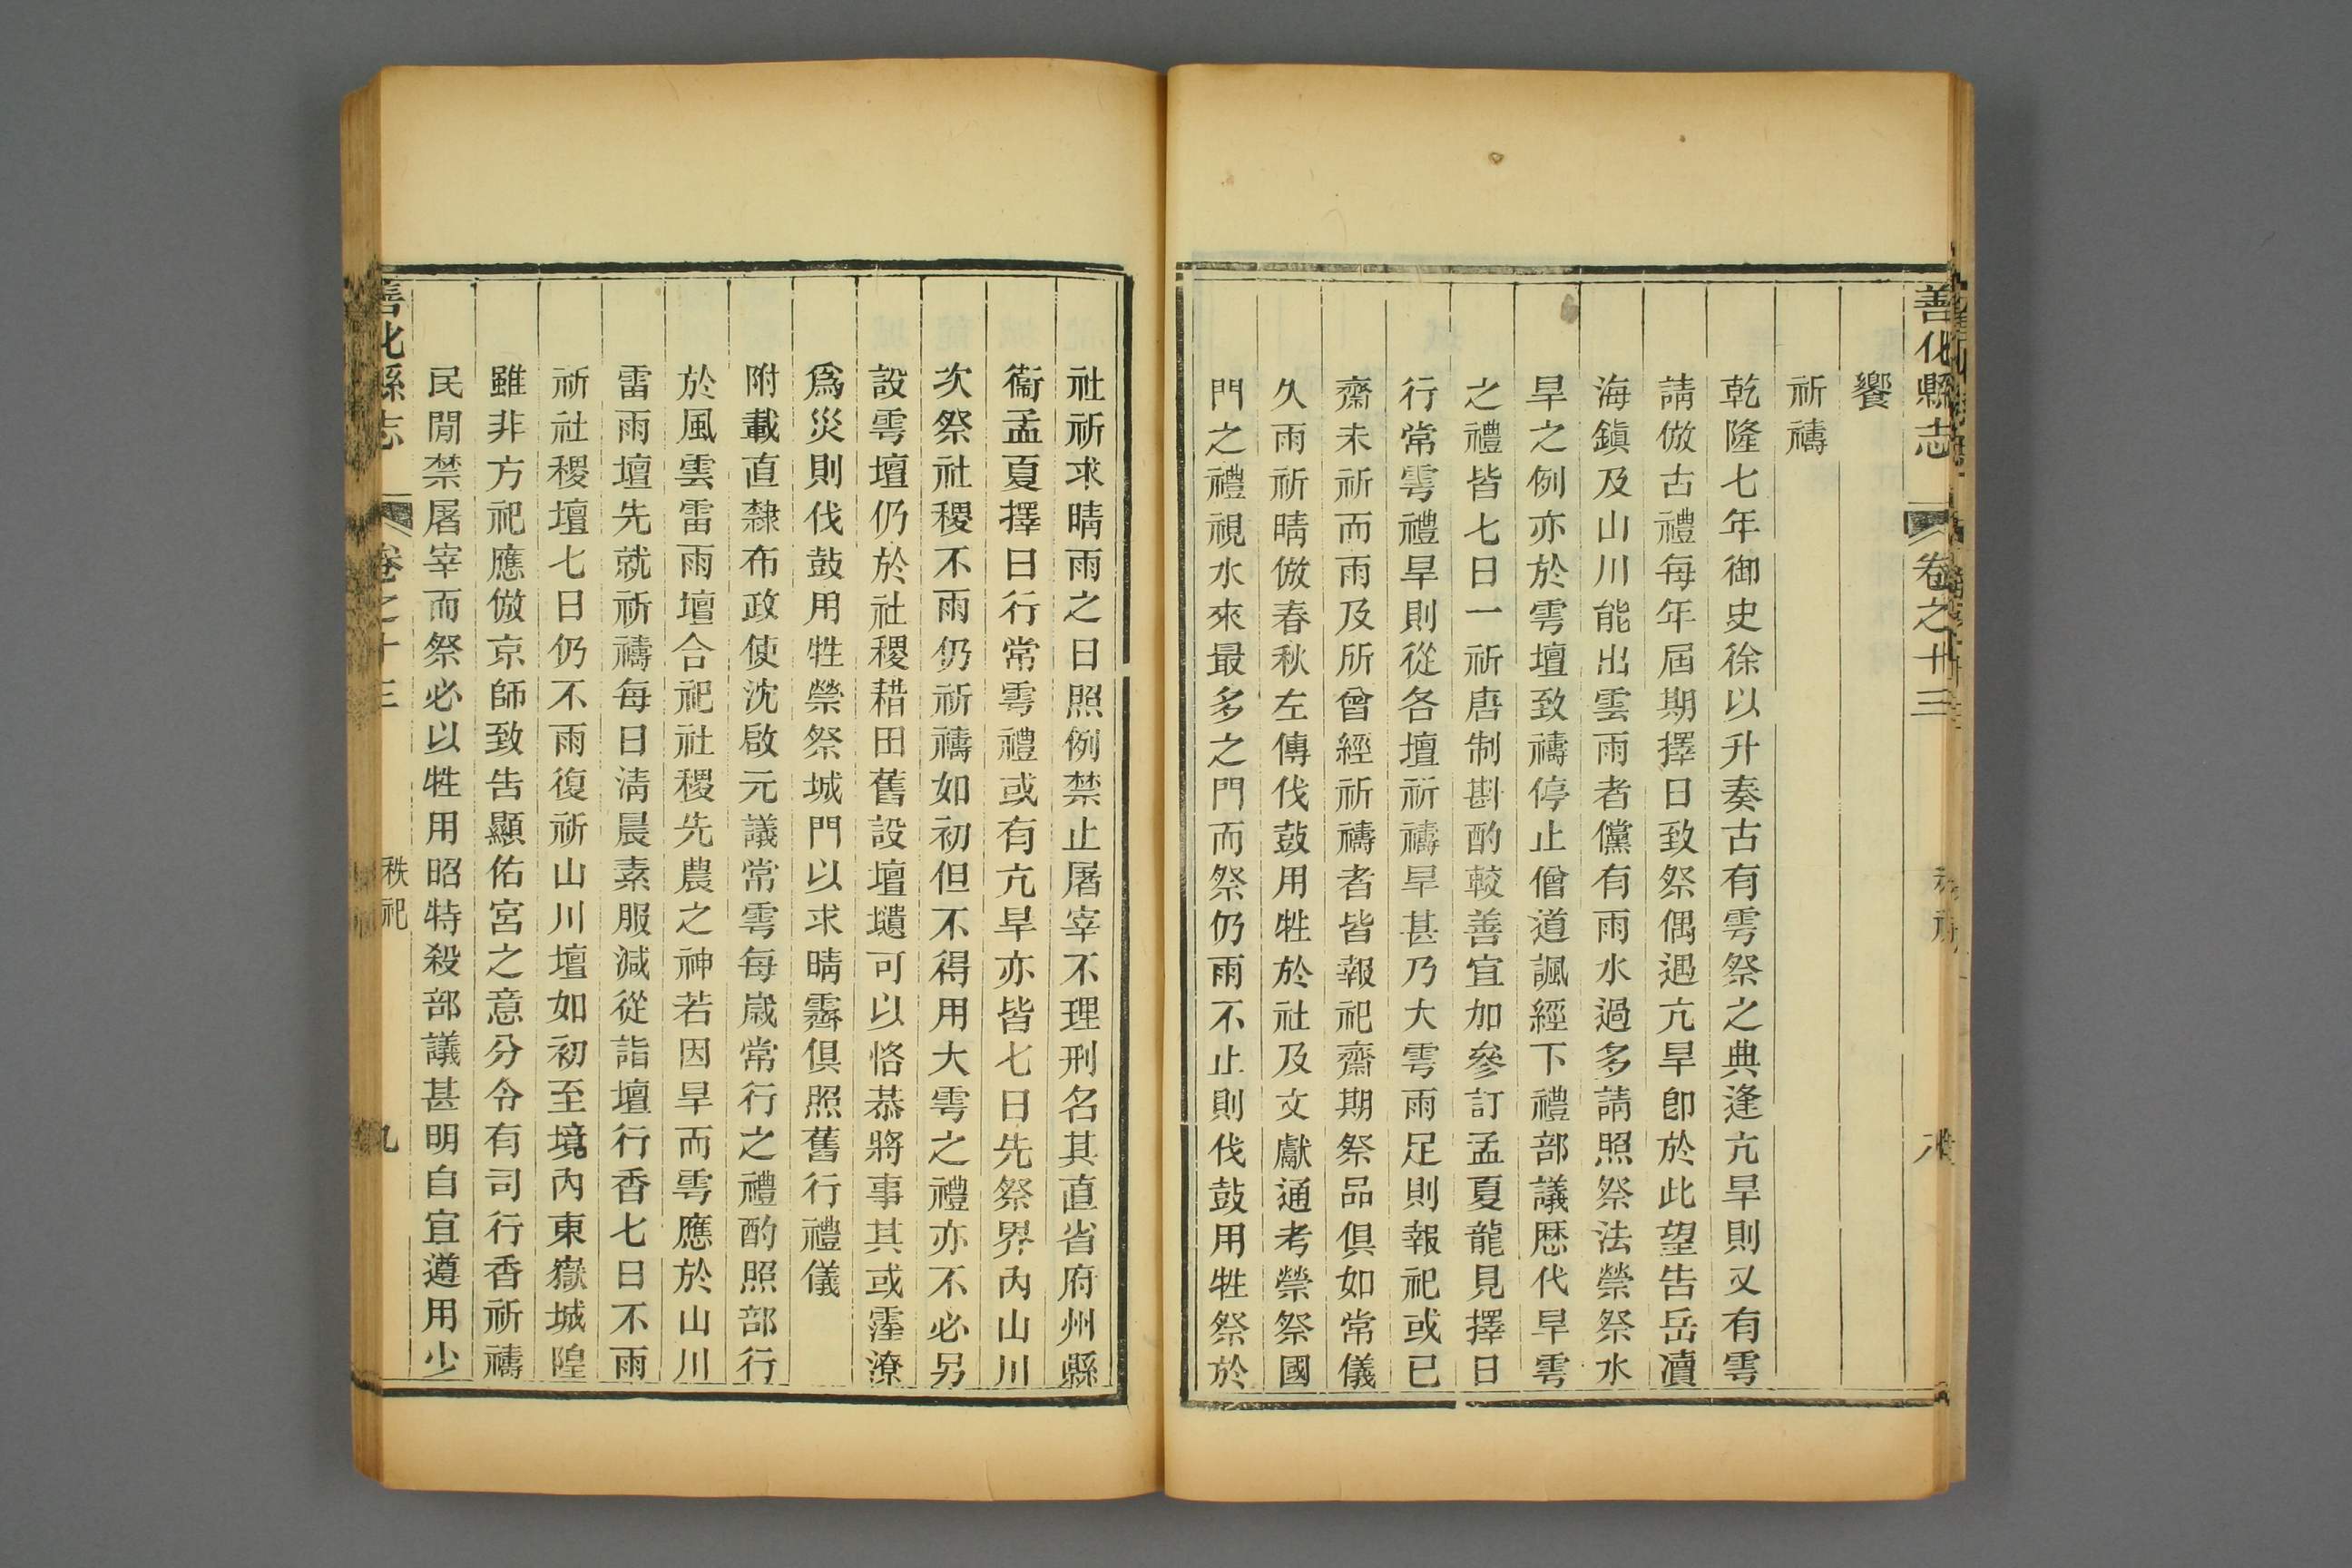 善化縣志 卷之十三
饗
祈禱
乾隆七年御史徐以升奏古有雩祭之典逢亢旱則又有雩
請倣古禮每年屆期擇日致祭偶遇亢旱卽於此望告岳瀆
海鎭及山川能出雲雨者儻有雨水過多請照祭法禜祭水
旱之例亦於雩壇致禱停止僧道諷經下禮部議歷代旱雩
之禮皆七日一祈唐制斟酌較善宜加參訂孟夏龍見擇日
行常雩禮旱則從各壇祈禱旱甚乃大雩雨足則報祀或已
齋未祈而雨及所曾經祈禱者皆報祀齋期祭品俱如常儀
久雨祈晴倣春秋左傳伐鼓用牲於社及文獻通考禜祭國
門之禮視水來最多之門而祭仍雨不止則伐鼓用牲祭於
社祈求晴雨之日照例禁止屠宰不理刑名其直省府州縣
衞孟夏擇日行常雩禮或有亢旱亦皆七日先祭界內山川
次祭社稷不雨仍祈禱如初但不得用大雩之禮亦不必另
設雩壇仍於社稷耤田舊設壇壝可以恪恭將事其或霪潦
爲災則伐鼓用牲禜祭城門以求晴霽俱照舊行禮儀
附載直隸布政使沈啟元議常雩每歲常行之禮酌照部行
於風雲雷雨壇合祀社稷先農之神若因旱而雩應於山川
雷雨壇先就祈禱每日淸晨素服減從詣壇行香七日不雨
祈社稷壇七日仍不雨復祈山川壇如初至境內東嶽城隍
雖非方祀應倣京師致告顯佑宮之意分令有司行香祈禱
民閒禁屠宰而祭必以牲用昭特殺部議甚明自宜遵用少
善化縣志 卷之十三 秩祀 九